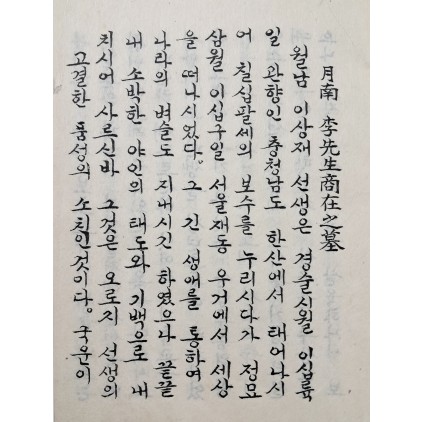 月南 李先生商在之墓
월남 이상재 선생은 경술시월 이십륙
일 관향인 충청남도 한산에서 태어나시
어 칠십팔세의 보수를 누리시다가 정묘
삼월 이십구일 서울재동 우거에서 세상
을 떠나시었다. 그 긴 생애를 통하여
나라의 벼슬도 지내시긴 하였으나 끝끝
내 소박한 야인의 태도와 기백으로 내
치시어 사르신바 그것은 오로지 선생의
고결한 품성의 소치인것이다. 국운이